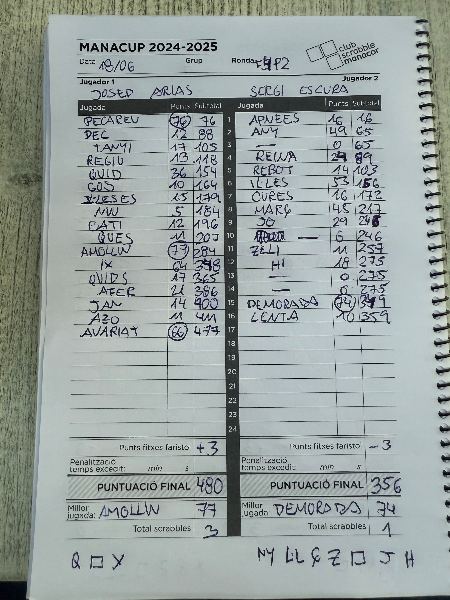 MANACUP 2024-2025
club scrabble manacor
Data 19/06 Grup Ronda
Jugador 1 Jugador 2
JOSEP ARIAS SERGI ESCURA
Jugada Punts Subtotal Jugada Punts Subtotal
PECAREU 76 76 1 APNEES 16 16
DEC 12 88 2 ANY 49 65
TANYI 17 105 3 — 0 65
REGIU 13 118 4 REINA 24 89
GUID 36 154 5 REBOT 14 103
GOS 10 164 6 ILLES 53 156
15 179 7 CURES 16 172
MU 5 184 8 MARÇ 45 217
PATI 12 196 9 JO 29 246
QUES 11 207 10 — 0 246
AMOLLIN 77 284 11 ZELI 11 257
IX 64 348 12 HI 18 275
OVIDS 17 365 13 — 0 275
AFER 21 386 14 — 0 275
JAN 14 400 15 DEMORADA 74 349
AZO 11 411 16 LENTA 10 359
AVARIAT 66 477 17
18
19
20
21
22
23
24
Punts fitxes faristol +3 Punts fitxes faristol -3
Penalització temps excedit: min s Penalització temps excedit: min s
PUNTUACIÓ FINAL 480 PUNTUACIÓ FINAL 356
Millor jugada: AMOLLIN 77 Millor jugada DEMORADA 74
Total scrabbles 3 Total scrabbles 1
Q □ X NY L·L Ç Z □ J H